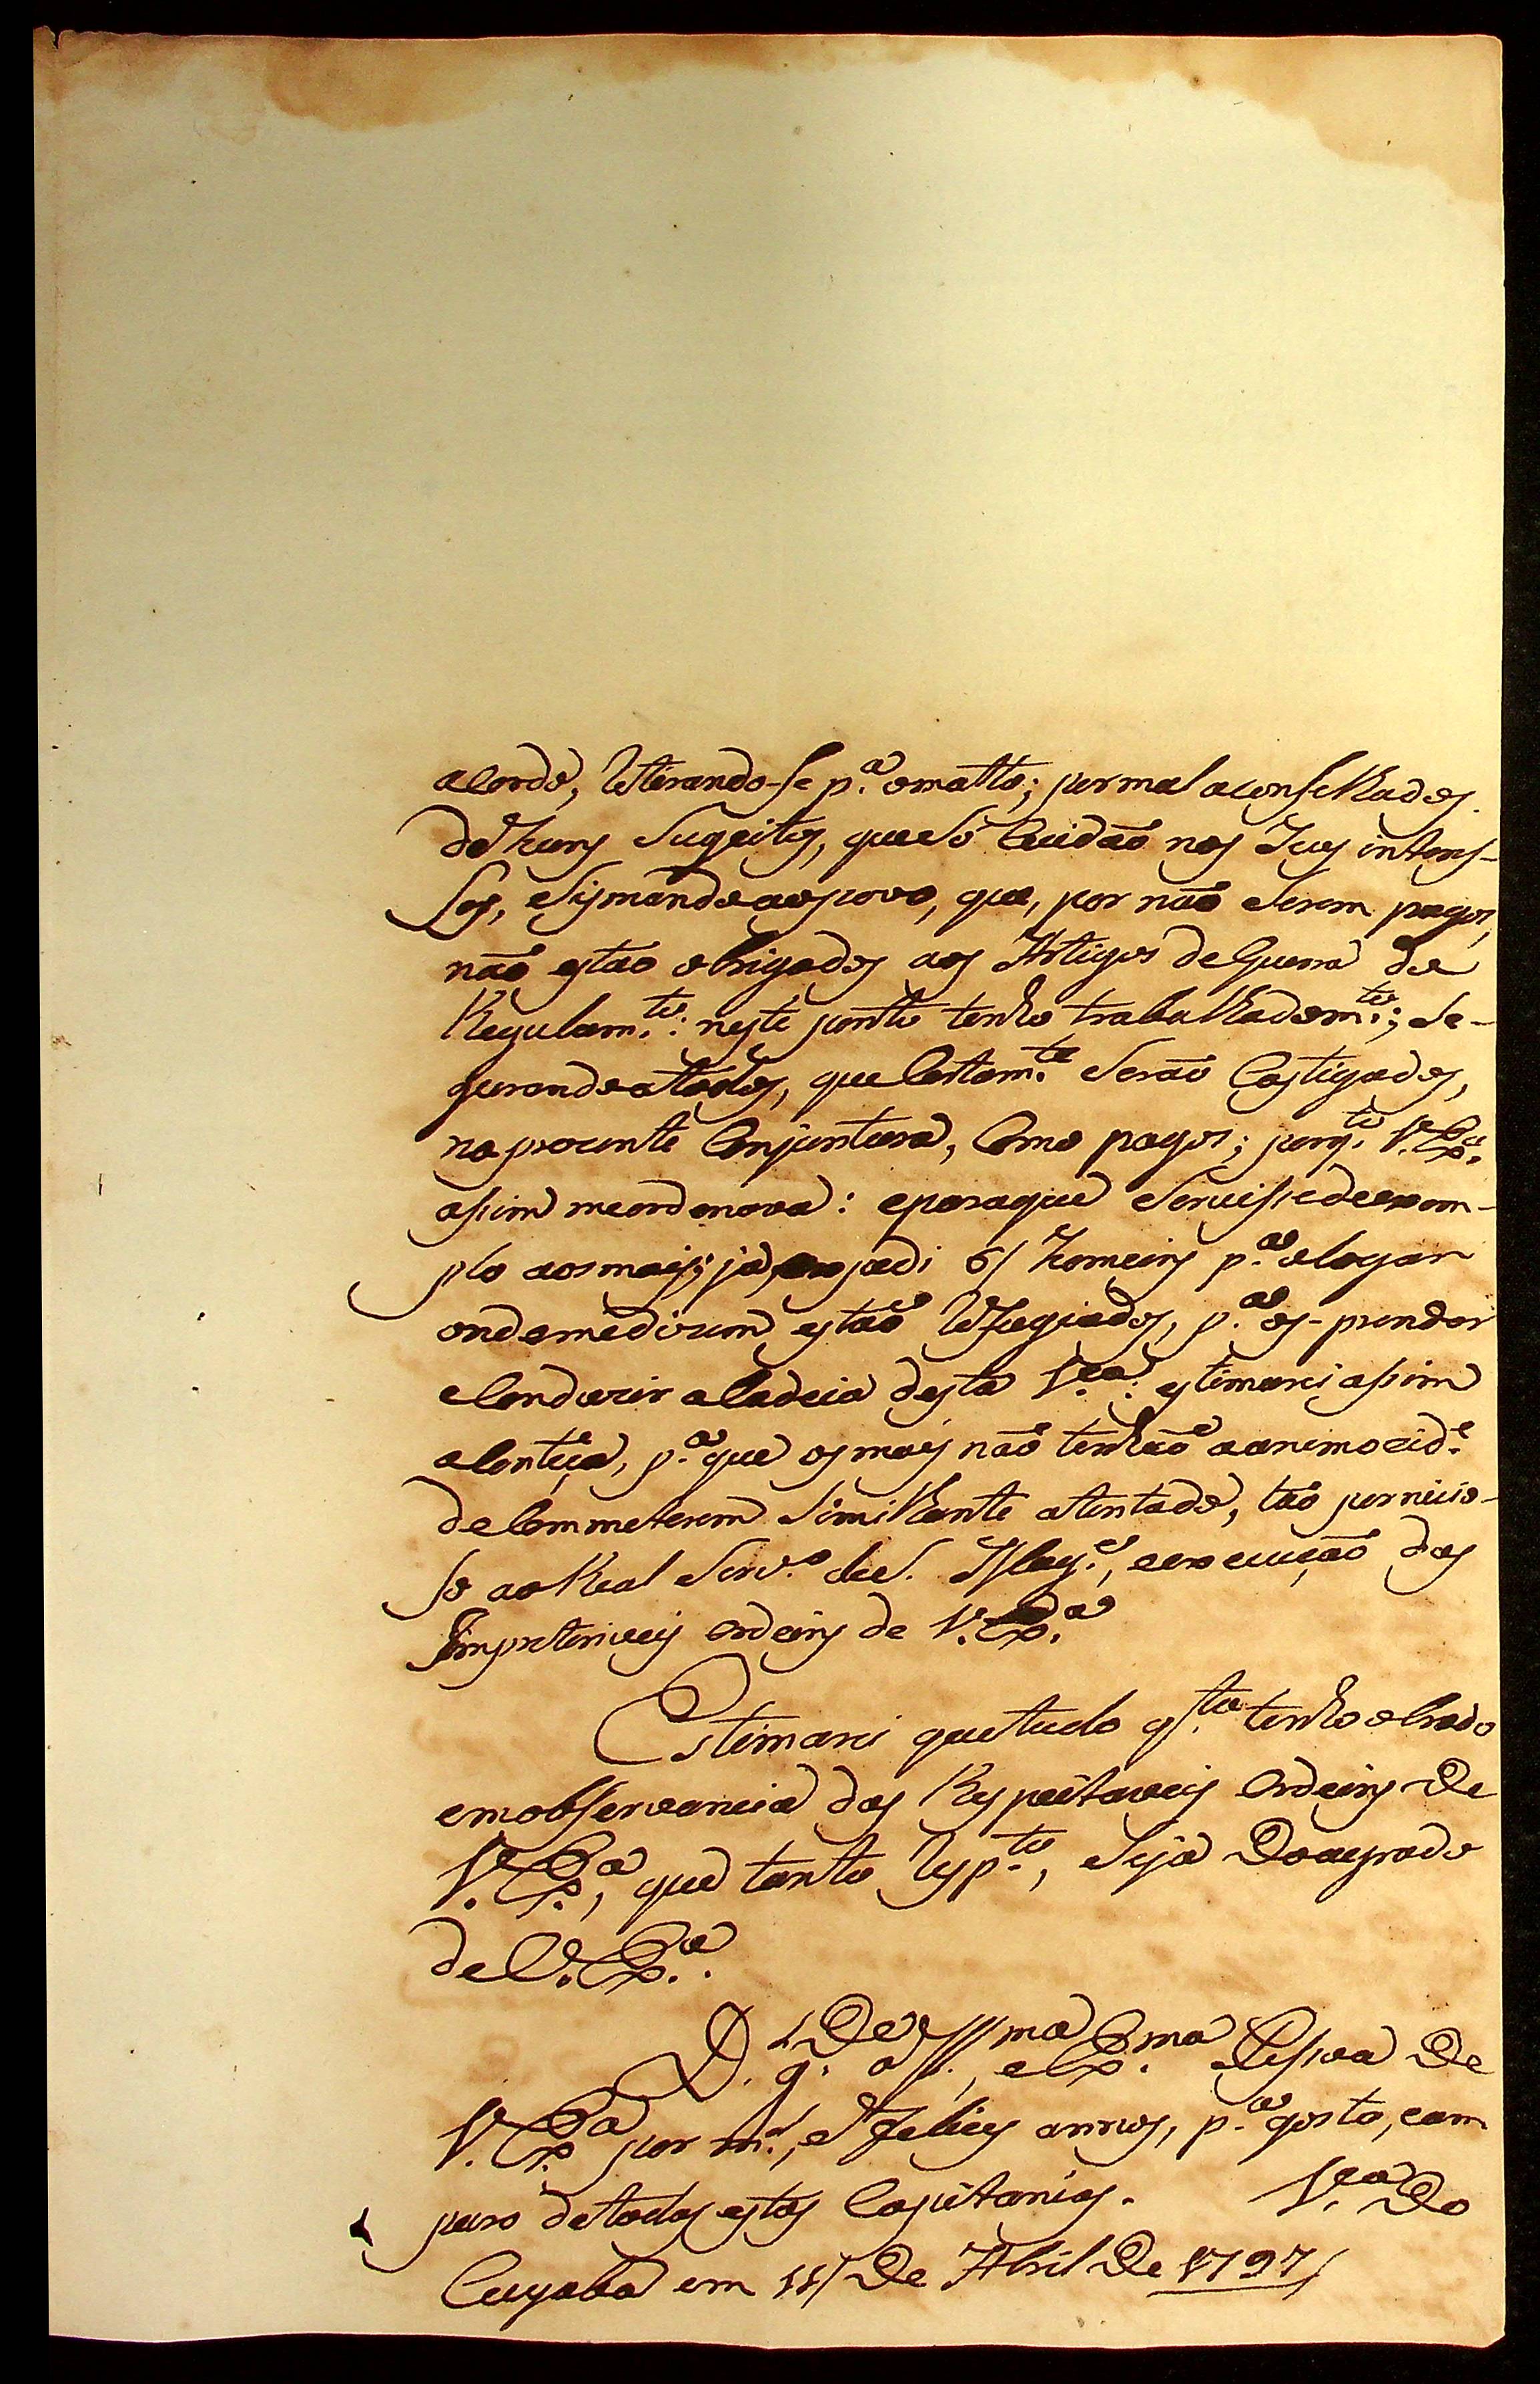 acordo, retirando-se p.ª omatto; por mal aconselhados
dehuns Sugeitos, quesó Cuidaõ nos Seus interes-
ses, e ao povo, que, por naõ Serem pagos,
naõ estaõ obrigados aos Artigos deGuerra do
Regulam.to: neste ponto tenho trabalhadom.to; Se-
gurandoatodos, queCertam.te Seraõ Castigados,
noprezente Conjuntura, Como pagos; porq.to V. Ex.ª
assim meordenava: eparaque Servissedeexem-
plo aosmais; já expedi 6/ homeins p.ª olugar
ondemedizem estaõ Refugiados, p.ª os-prender
eConduzir aCadeia desta V.ª: estimarei assim
aConteça, p.ª que osmais naõ tenhaõ aanimozid.e
deCommeterem Similhante atentado, taõ pernicio-
so aoReal Serv.º deS. Mag.e, eexecuçaõ das
Impreteriveis Ordeins de V. Ex.ª
Estimarei quetudo q.to tenhoobrado
emobservancia das Respeitaveis Ordeins De
V. Ex.ª, que tanto resp.to, Seja Doagrado
deV. Ex.ª.
D.s g.De a Ill.ma, eEx.ma Pessoa De
V. Ex.ª por m.s, eFelices annos, p.ª gosto, eam
paro detodas estas Capitanias. V.ª Do
Cuyabá em 11/ De Abril De 1797/